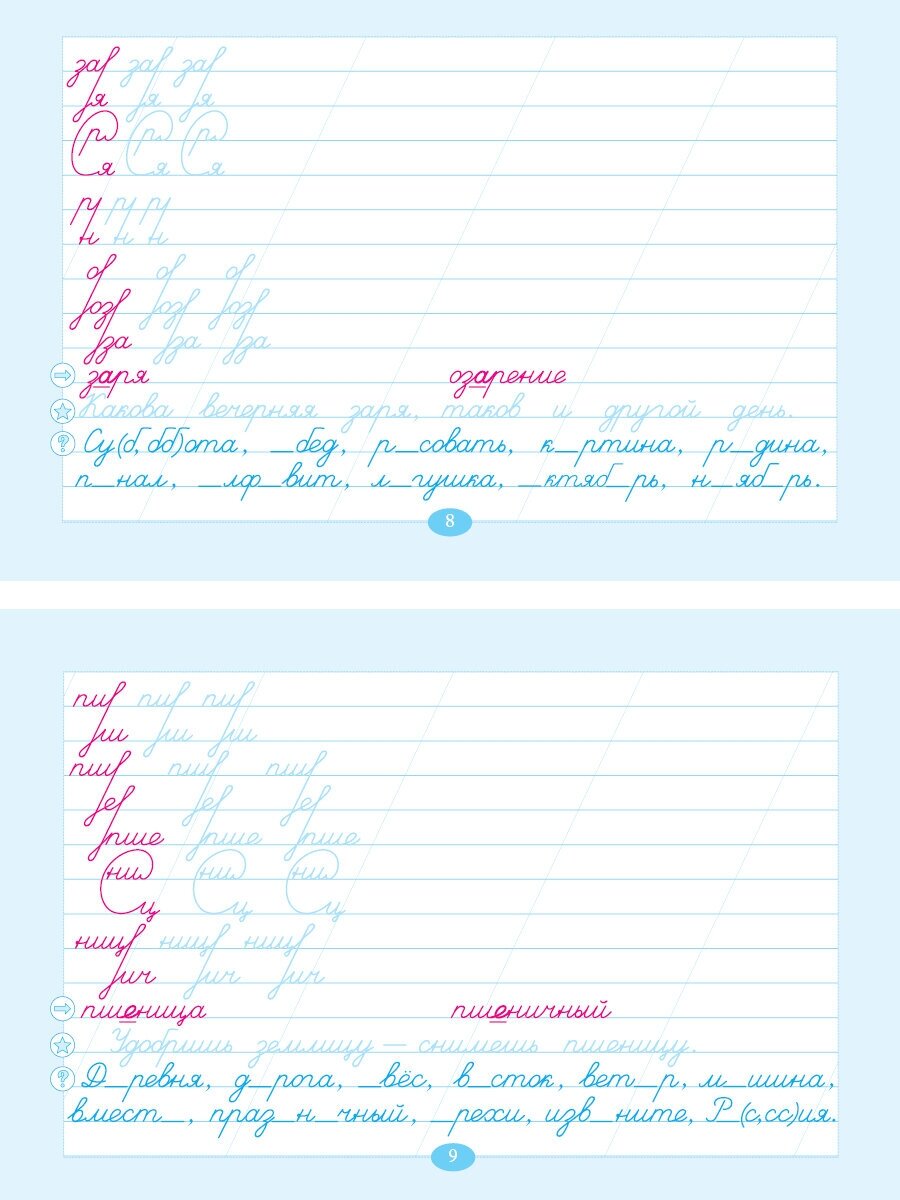 за за за
я я я
р р р
я я я
ру ру ру
н н н
о о о
оз оз оз
за за за
заря озарение
Какова вечерняя заря, таков и другой день.
Су(б, бб)ота, _бед, р_совать, к_ртина, р_дина,
п_нал, _лф_вит, л_гушка, _ктяб_рь, н_яб_рь.
8
пш пш пш
ш ш ш
пш пш пш
е е е
пше пше пше
ни ни ни
ц ц ц
ниц ниц ниц
ич ич ич
пшеница пшеничный
Удобришь землицу — снимешь пшеницу.
Д_ревня, д_рога, _вёс, в_сток, вет_р, м_шина,
вмест_, праз_н_чный, _рехи, изв_ните, Р_(с,сс)ия.
9